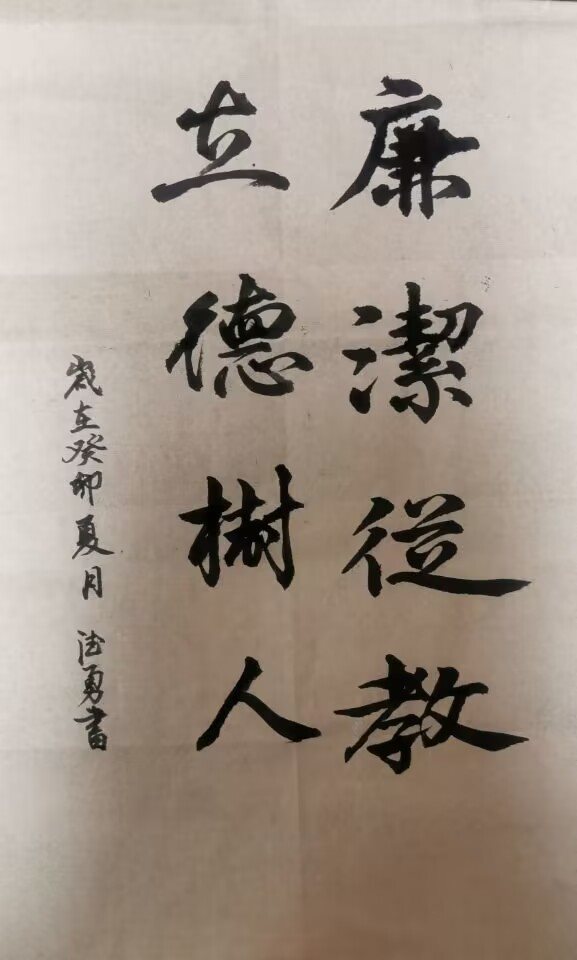 廉潔從教
立德樹人
歲在癸卯夏月 德勇書